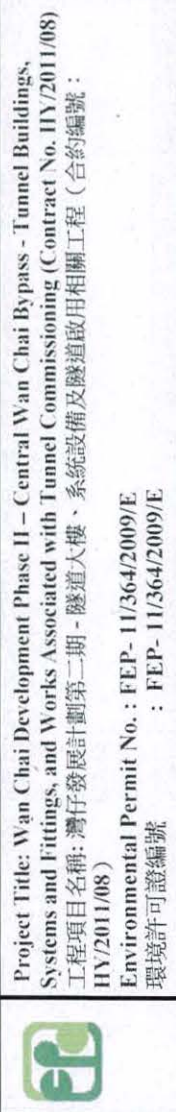 Project Title: Wan Chai Development Phase II – Central Wan Chai Bypass - Tunnel Buildings,
Systems and Fittings, and Works Associated with Tunnel Commissioning (Contract No. HY/2011/08)
工程項目名稱: 灣仔發展計劃第二期 - 隧道大樓、系統設備及隧道啟用相關工程（合約編號：
HY/2011/08）
Environmental Permit No. : FEP- 11/364/2009/E
環境許可證編號 : FEP- 11/364/2009/E